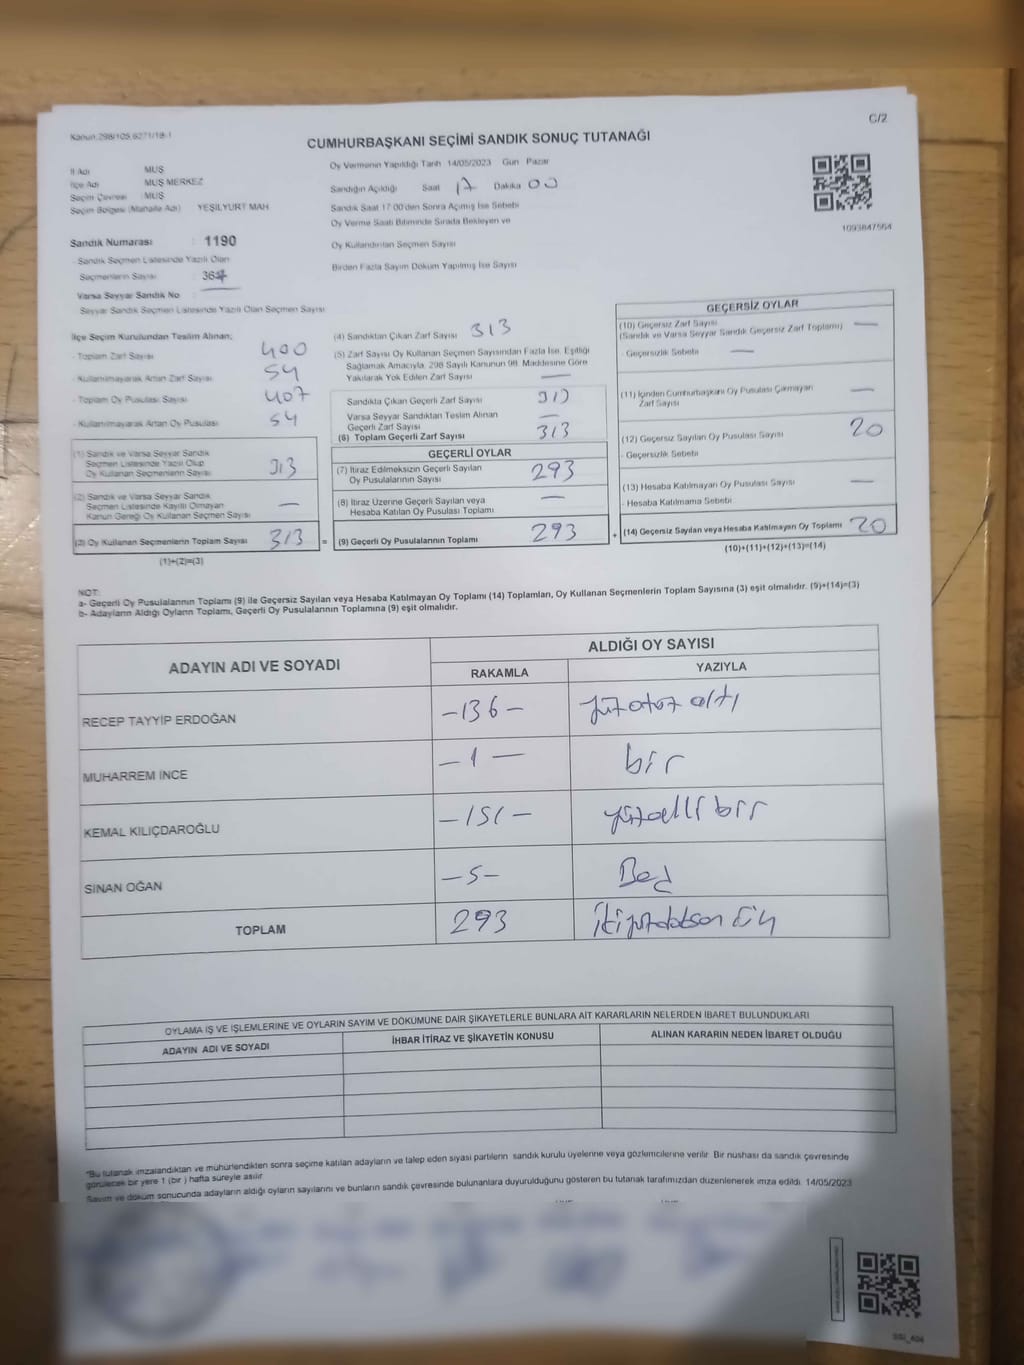 Kanun:298/105,6271/18-1
C/2
CUMHURBAŞKANI SEÇİMİ SANDIK SONUÇ TUTANAĞI
İl Adı MUŞ
İlçe Adı MUŞ MERKEZ
Seçim Çevresi : MUŞ
Seçim Bölgesi (Mahalle Adı) YEŞİLYURT MAH
Oy Vermenin Yapıldığı Tarih 14/05/2023 Gün Pazar
Sandığın Açıldığı Saat 17 Dakika 00
Sandık Saat 17:00'den Sonra Açılmış İse Sebebi
Oy Verme Saati Bitiminde Sırada Bekleyen ve
Oy Kullandırılan Seçmen Sayısı
Birden Fazla Sayım Döküm Yapılmış İse Sayısı
1093847564
Sandık Numarası : 1190
- Sandık Seçmen Listesinde Yazılı Olan
Seçmenlerin Sayısı 367
Varsa Seyyar Sandık No
Seyyar Sandık Seçmen Listesinde Yazılı Olan Seçmen Sayısı
İlçe Seçim Kurulundan Teslim Alınan;
- Toplam Zarf Sayısı 400
- Kullanılmayarak Artan Zarf Sayısı 54
- Toplam Oy Pusulası Sayısı 407
- Kullanılmayarak Artan Oy Pusulası 54
(1) Sandık ve Varsa Seyyar Sandık
Seçmen Listesinde Yazılı Olup
Oy Kullanan Seçmenlerin Sayısı 313
(2) Sandık ve Varsa Seyyar Sandık
Seçmen Listesinde Kayıtlı Olmayan
Kanun Gereği Oy Kullanan Seçmen Sayısı —
(3) Oy Kullanan Seçmenlerin Toplam Sayısı 313 =
(1)+(2)=(3)
(4) Sandıktan Çıkan Zarf Sayısı 313
(5) Zarf Sayısı Oy Kullanan Seçmen Sayısından Fazla İse, Eşitliği
Sağlamak Amacıyla, 298 Sayılı Kanunun 98. Maddesine Göre
Yakılarak Yok Edilen Zarf Sayısı —
Sandıkta Çıkan Geçerli Zarf Sayısı 313
Varsa Seyyar Sandıktan Teslim Alınan
Geçerli Zarf Sayısı —
(6) Toplam Geçerli Zarf Sayısı 313
GEÇERLİ OYLAR
(7) İtiraz Edilmeksizin Geçerli Sayılan
Oy Pusulalarının Sayısı 293
(8) İtiraz Üzerine Geçerli Sayılan veya
Hesaba Katılan Oy Pusulası Toplamı —
(9) Geçerli Oy Pusulalarının Toplamı 293 +
GEÇERSİZ OYLAR
(10) Geçersiz Zarf Sayısı —
(Sandık ve Varsa Seyyar Sandık Geçersiz Zarf Toplamı)
- Geçersizlik Sebebi —
(11) İçinden Cumhurbaşkanı Oy Pusulası Çıkmayan
Zarf Sayısı —
(12) Geçersiz Sayılan Oy Pusulası Sayısı 20
- Geçersizlik Sebebi
(13) Hesaba Katılmayan Oy Pusulası Sayısı —
- Hesaba Katılmama Sebebi
(14) Geçersiz Sayılan veya Hesaba Katılmayan Oy Toplamı 20
(10)+(11)+(12)+(13)=(14)
NOT:
a- Geçerli Oy Pusulalarının Toplamı (9) ile Geçersiz Sayılan veya Hesaba Katılmayan Oy Toplamı (14) Toplamları, Oy Kullanan Seçmenlerin Toplam Sayısına (3) eşit olmalıdır. (9)+(14)=(3)
b- Adayların Aldığı Oyların Toplamı, Geçerli Oy Pusulalarının Toplamına (9) eşit olmalıdır.
ADAYIN ADI VE SOYADI ALDIĞI OY SAYISI
RAKAMLA YAZIYLA
RECEP TAYYİP ERDOĞAN -136- yüzotuz altı
MUHARREM İNCE -1- bir
KEMAL KILIÇDAROĞLU -151- yüzelli bir
SİNAN OĞAN -5- Beş
TOPLAM 293 ikiyüzdoksan üç
OYLAMA İŞ VE İŞLEMLERİNE VE OYLARIN SAYIM VE DÖKÜMÜNE DAİR ŞİKAYETLERLE BUNLARA AİT KARARLARIN NELERDEN İBARET BULUNDUKLARI
ADAYIN ADI VE SOYADI İHBAR İTİRAZ VE ŞİKAYETİN KONUSU ALINAN KARARIN NEDEN İBARET OLDUĞU
*Bu tutanak imzalandıktan ve mühürlendikten sonra seçime katılan adayların ve talep eden siyasi partilerin sandık kurulu üyelerine veya gözlemcilerine verilir. Bir nüshası da sandık çevresinde
görülecek bir yere 1 (bir ) hafta süreyle asılır
Sayım ve döküm sonucunda adayların aldığı oyların sayılarını ve bunların sandık çevresinde bulunanlara duyurulduğunu gösteren bu tutanak tarafımızdan düzenlenerek imza edildi. 14/05/2023